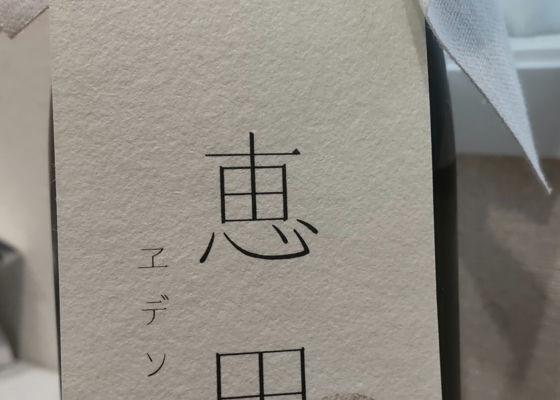 恵田
ヱデン